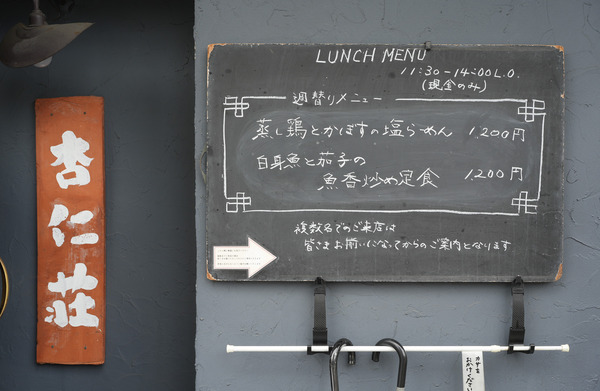 杏仁荘
LUNCH MENU
11:30-14:00 L.O.
(現金のみ)
週替りメニュー
蒸し鶏とかぼすの塩らーめん 1,200円
白身魚と茄子の
魚香炒め定食 1,200円
複数名でのご来店は
皆さまお揃いになってからのご案内となります